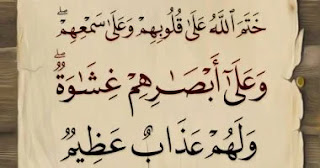 خَتَمَ ٱللَّهُ عَلَىٰ قُلُوبِهِمْ وَعَلَىٰ سَمْعِهِمْ ۖ
وَعَلَىٰٓ أَبْصَـٰرِهِمْ غِشَـٰوَةٌ ۖ
وَلَهُمْ عَذَابٌ عَظِيمٌ